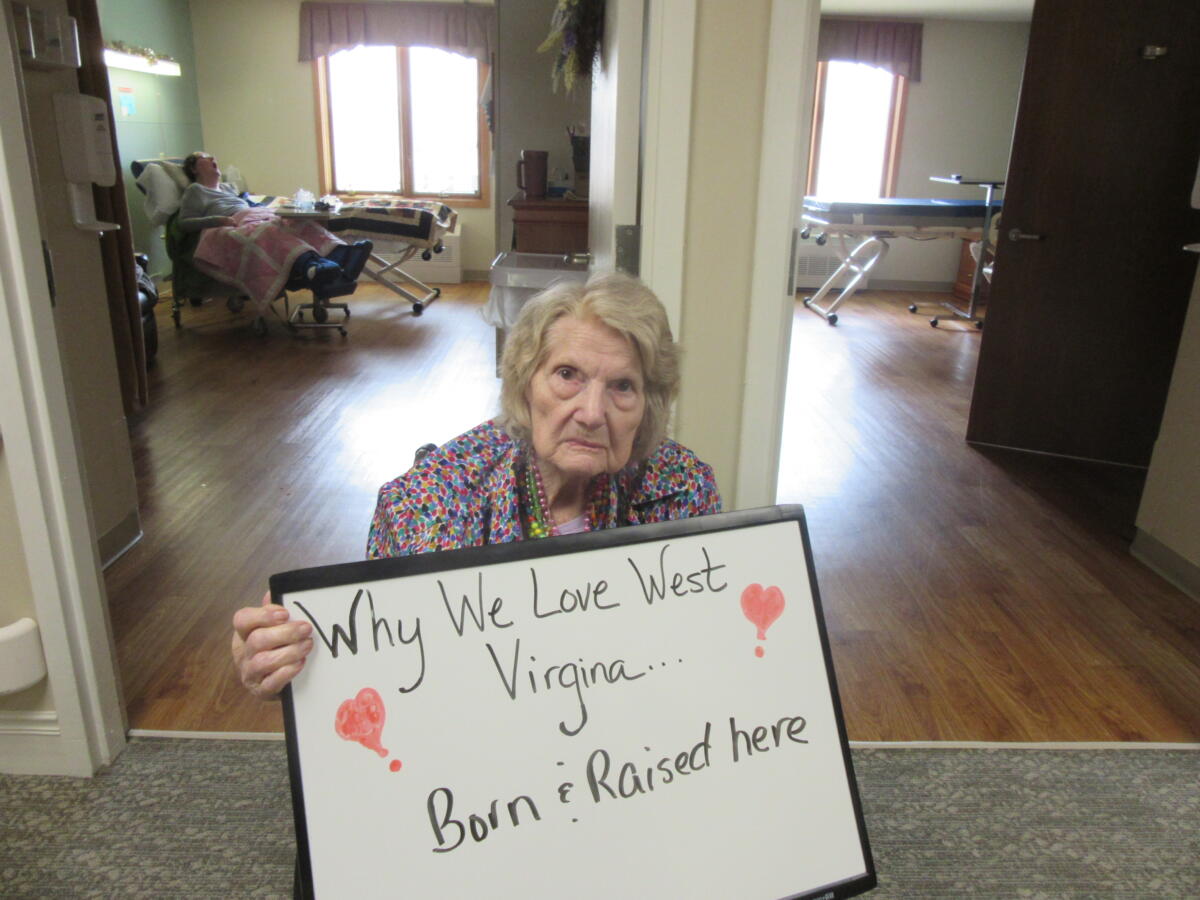 Why We Love West
Virgina...
Born & Raised here